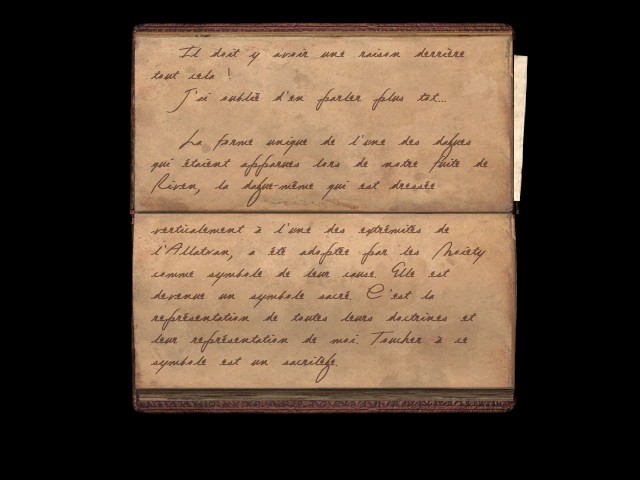 Il doit y avoir une raison derrière
tout cela !
J'ai oublié d'en parler plus tot...
La forme unique de l'une des dagues
qui étaient apparues lors de notre fuite de
Riven, la dague-même qui est dressée
verticalement à l'une des extrémités de
l'Allatwan, a été adoptée par les Moiety
comme symbole de leur cause. Elle est
devenue un symbole sacré. C'est la
représentation de toutes leurs doctrines et
leur représentation de moi. Toucher à ce
symbole est un sacrilège.